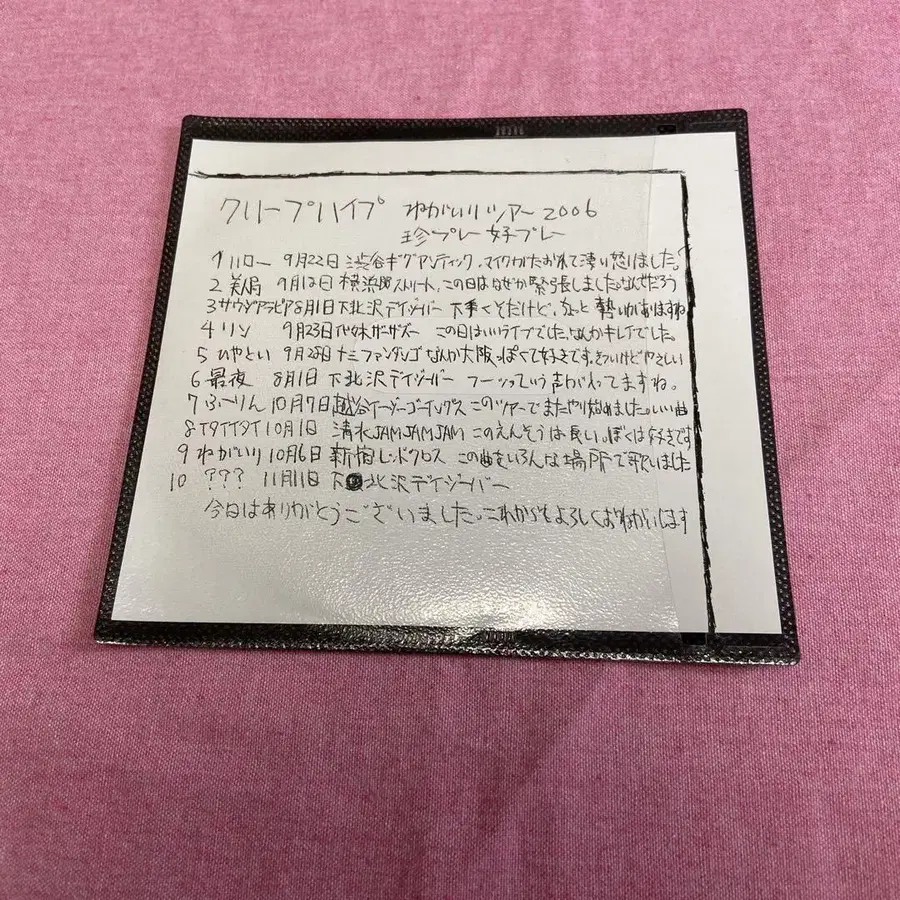 クリープハイプ ねがいりツアー2006
珍プレー好プレー
1 ハロー 9月22日 渋谷ギグアンティック、マイクがたおれて凄い怒りました。
2 美人局 9月12日 横浜 ストリート、この日はなぜか緊張しました。なんでだろう
3 サウダアラビア 8月1日 下北沢デイジーバー 下手くそだけど、 勢いがありますね
4 リン 9月23日 この日はいいライブでした。なんかキレイでした。
5 ひやとい 9月28日 十三ファンダンゴ なんか大阪っぽくて好きです。 やさしい
6 最夜 8月1日 下北沢デイジーバー フーっていう声が入ってますね。
7 ふーりん 10月7日 越谷イージーゴーイングス このツアーでまたやり始めました。いい曲
8 イタイイタイ 10月1日 清水JAMJAMJAM このえんそうは長い。ぼくは好きです
9 ねがいり 10月6日 新宿レッドクロス この曲をいろんな場所で歌いました
10 ??? 11月11日 下北沢デイジーバー
今日はありがとうございました。これからもよろしくおねがいします